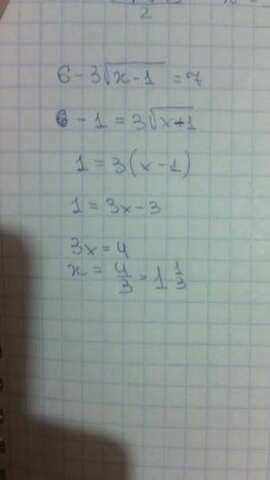 2
6 - 3√(x - 1) = 7
6 - 1 = 3√(x - 1)
1 = 3(x - 1)
1 = 3x - 3
3x = 4
x = 4/3 = 1 1/3